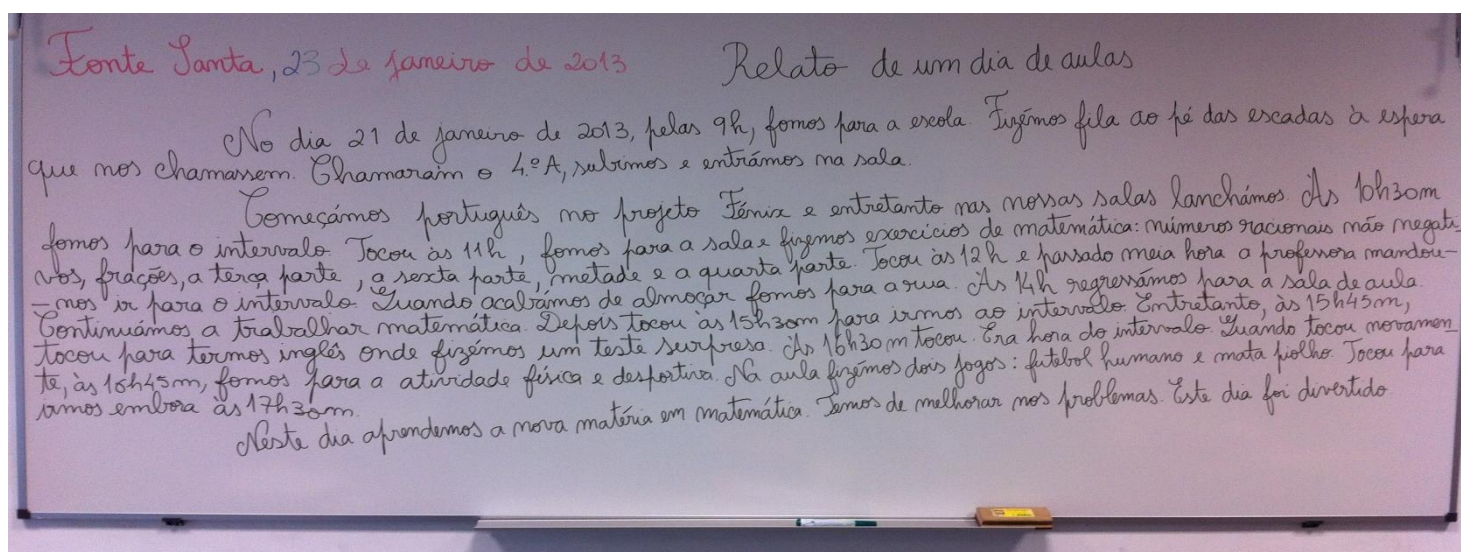 Fonte Santa, 23 de janeiro de 2013 Relato de um dia de aulas
No dia 21 de janeiro de 2013, pelas 9h, fomos para a escola. Fizémos fila ao pé das escadas à espera
que nos chamassem. Chamaram o 4.º A, subimos e entrámos na sala.
Começámos português no projeto Fénix e entretanto nas nossas salas lanchámos. Às 10h30m
fomos para o intervalo. Tocou às 11h, fomos para a sala e fizemos exercícios de matemática: números racionais não negati-
vos, frações, a terça parte, a sexta parte, metade e a quarta parte. Tocou às 12h e passado meia hora a professora mandou-
-nos ir para o intervalo. Quando acabámos de almoçar fomos para a rua. Às 14h regressámos para a sala de aula.
Continuámos a trabalhar matemática. Depois tocou às 15h30m para irmos ao intervalo. Entretanto, às 15h45m,
tocou para termos inglês onde fizémos um teste surpresa. Às 16h30m tocou. Era hora do intervalo. Quando tocou novamen-
te, às 16h45m, fomos para a atividade física e desportiva. Na aula fizémos dois jogos: futebol humano e mata piolho. Tocou para
irmos embora às 17h30m.
Neste dia aprendemos a nova matéria em matemática. Temos de melhorar nos problemas. Este dia foi divertido.